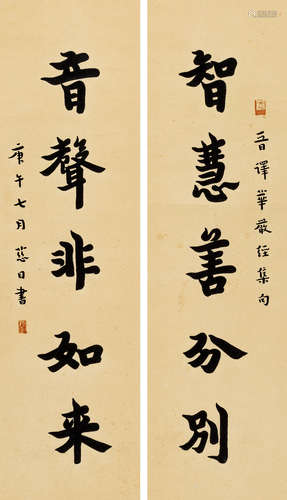 智慧善分別
晉譯華嚴經集句
音聲非如来
庚午七月
日書